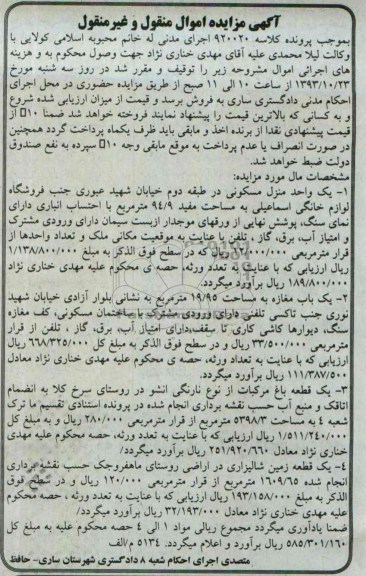 آگهی مزایده اموال منقول و غیرمنقول
بموجب پرونده کلاسه ۹۲۰۰۲۰ اجرای مدنی له خانم محبوبه اسلامی کولایی با
وکالت لیلا محمدی علیه آقای مهدی خناری نژاد جهت وصول محکوم به و هزینه
های اجرائی اموال مشروحه زیر را توقیف و مقرر شد در روز سه شنبه مورخ
۱۳۹۳/۱۰/۲۳ از ساعت ۱۰ الی ۱۱ صبح از طریق مزایده حضوری در محل اجرای
احکام مدنی دادگستری ساری به فروش برسد و قیمت از میزان ارزیابی شده شروع
و به کسانی که بالاترین قیمت را پیشنهاد نمایند فروخته خواهد شد ضمنا ۱۰٪ از
قیمت پیشنهادی نقدا از برنده اخذ و مابقی باید ظرف یکماه پرداخت گردد همچنین
در صورت انصراف یا عدم پرداخت به موقع مابقی وجه ۱۰٪ سپرده به نفع صندوق
دولت ضبط خواهد شد.
مشخصات مال مورد مزایده:
۱- یک واحد منزل مسکونی در طبقه دوم خیابان شهید عبوری جنب فروشگاه
لوازم خانگی اسماعیلی به مساحت مفید ۹۴/۹ مترمربع با احتساب انباری دارای
نمای سنگ، پوشش نهایی از ورقهای موجدار ازبست سیمان دارای ورودی مشترک
و امتیاز آب، برق، گاز ، تلفن با عنایت به موقعیت مکانی ملک و تعداد واحدها از
قرار مترمربعی ۱۲/۰۰۰/۰۰۰ ریال که در سطح فوق الذکر به مبلغ ۱/۱۳۸/۸۰۰/۰۰۰
ریال ارزیابی که با عنایت به تعداد ورثه، حصه ی محکوم علیه مهدی خناری نژاد
۱۸۹/۸۰۰/۰۰۰ ریال برآورد میگردد.
۲- یک باب مغازه به مساحت ۱۹/۹۵ مترمربع به نشانی بلوار آزادی خیابان شهید
نوری جنب تاکسی تلفنی دارای ورودی مشترک با ساختمان مسکونی، کف مغازه
سنگ، دیوارها کاشی کاری تا سقف،دارای امتیاز آب، برق، گاز ، تلفن از قرار
مترمربعی ۳۳/۵۰۰/۰۰۰ ریال و در سطح فوق الذکر به مبلغ کل ۶۶۸/۳۲۵/۰۰۰ ریال
ارزیابی که با عنایت به تعداد ورثه، حصه ی محکوم علیه مهدی خناری نژاد معادل
۱۱۱/۳۸۷/۵۰۰ ریال برآورد میگردد.
۳- یک قطعه باغ مرکبات از نوع نارنگی انشو در روستای سرخ کلا به انضمام
اتاقک و منبع آب حسب نقشه برداری انجام شده در پرونده استنادی تقسیم ما ترک
شعبه ۴ به مساحت ۵۳۹۸/۳ مترمربع از قرار مترمربعی ۲۸۰/۰۰۰ ریال و به مبلغ کل
۱/۵۱۱/۲۴۰/۰۰۰ ریال ارزیابی که با عنایت به تعدد ورثه، حصه محکوم علیه مهدی
خناری نژاد معادل ۲۵۱/۹۲۰/۶۶۰ ریال برآورد میگردد/
۴- یک قطعه زمین شالیزاری در اراضی روستای ماهفروجک حسب نقشه برداری
انجام شده ۱۶۰۹/۶۵ مترمربع از قرار مترمربعی ۱۲۰/۰۰۰ ریال و در سطح فوق
الذکر به مبلغ ۱۹۳/۱۵۸/۰۰۰ ریال ارزیابی که با عنایت به تعدد ورثه ، حصه محکوم
علیه مهدی خناری نژاد معادل ۳۲/۱۹۳/۰۰۰ ریال برآورد میگردد/
ضمنا یادآوری میگردد مجموع ریالی مواد ۱ الی ۴ حصه محکوم علیه به مبلغ کل
۵۸۵/۳۰۱/۱۶۰ ریال برآورد و اعلام میگردد. ۵۱۳۴ م/الف
متصدی اجرای احکام شعبه ۸ دادگستری شهرستان ساری- حافظ